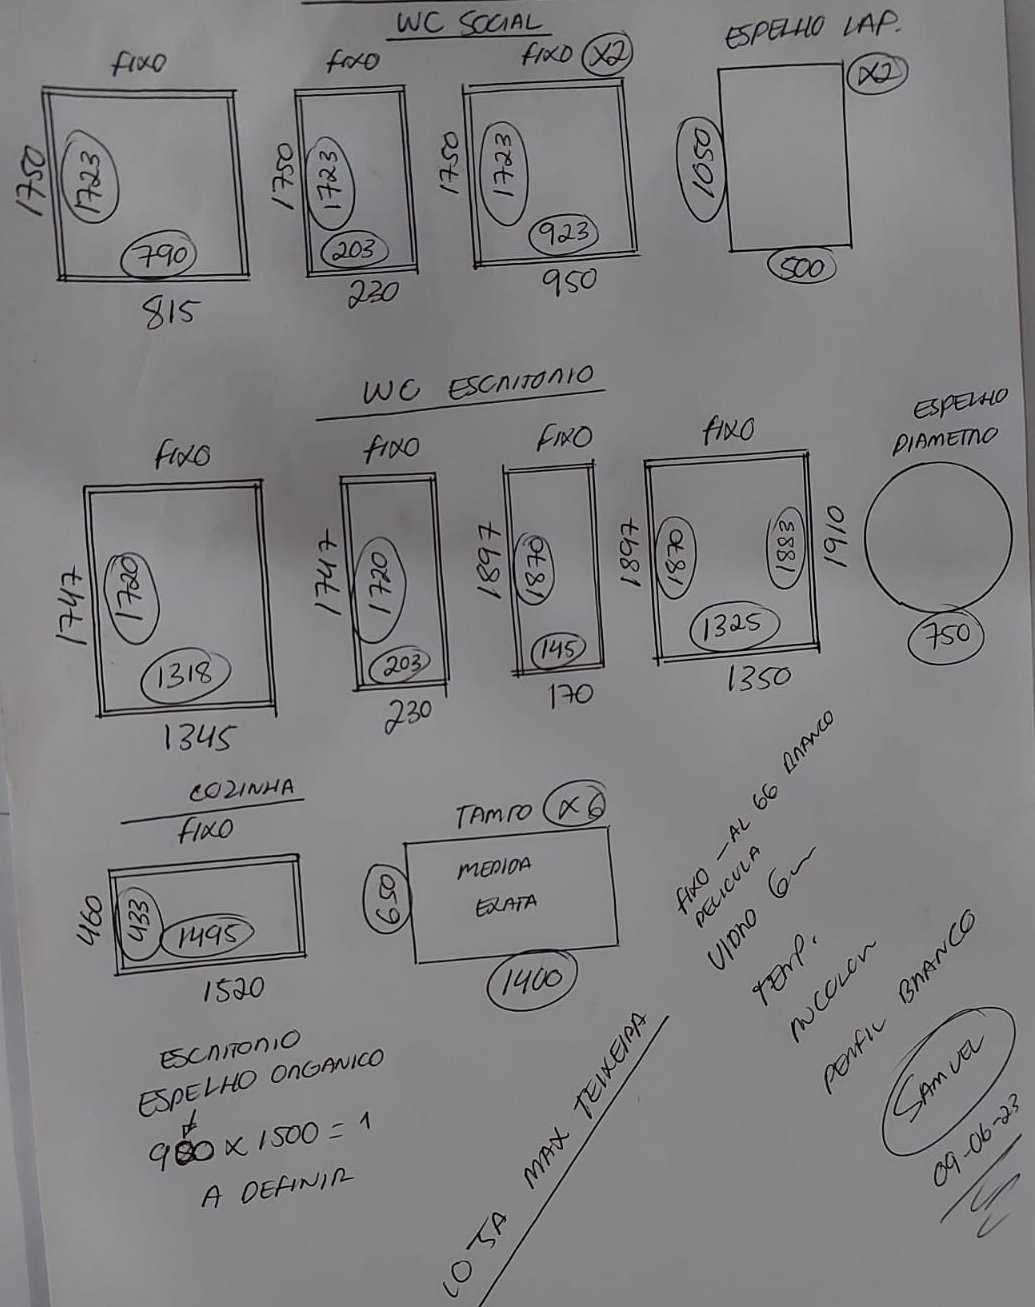 WC SOCIAL
FIXO
1750
1723
790
815
FIXO
1750
1723
203
230
FIXO X2
1750
1723
923
950
ESPELHO LAP.
X2
1050
500
WC ESCRITORIO
FIXO
1747
1720
1318
1345
FIXO
1747
1720
203
230
FIXO
1897
1870
145
170
FIXO
1897
1870
1883
1910
1325
1350
ESPELHO
DIAMETRO
750
COZINHA
FIXO
460
433
1495
1520
TAMPO X6
650
MEDIDA
EXATA
1400
FIXO - AL 66 BRANCO
PELICULA
VIDRO 6m
TEMP.
INCOLOR
PERFIL BRANCO
SAMUEL
09-06-23
ESCRITORIO
ESPELHO ORGANICO
900 x 1500 = 1
A DEFINIR
LOJA MAX TEIXEIRA